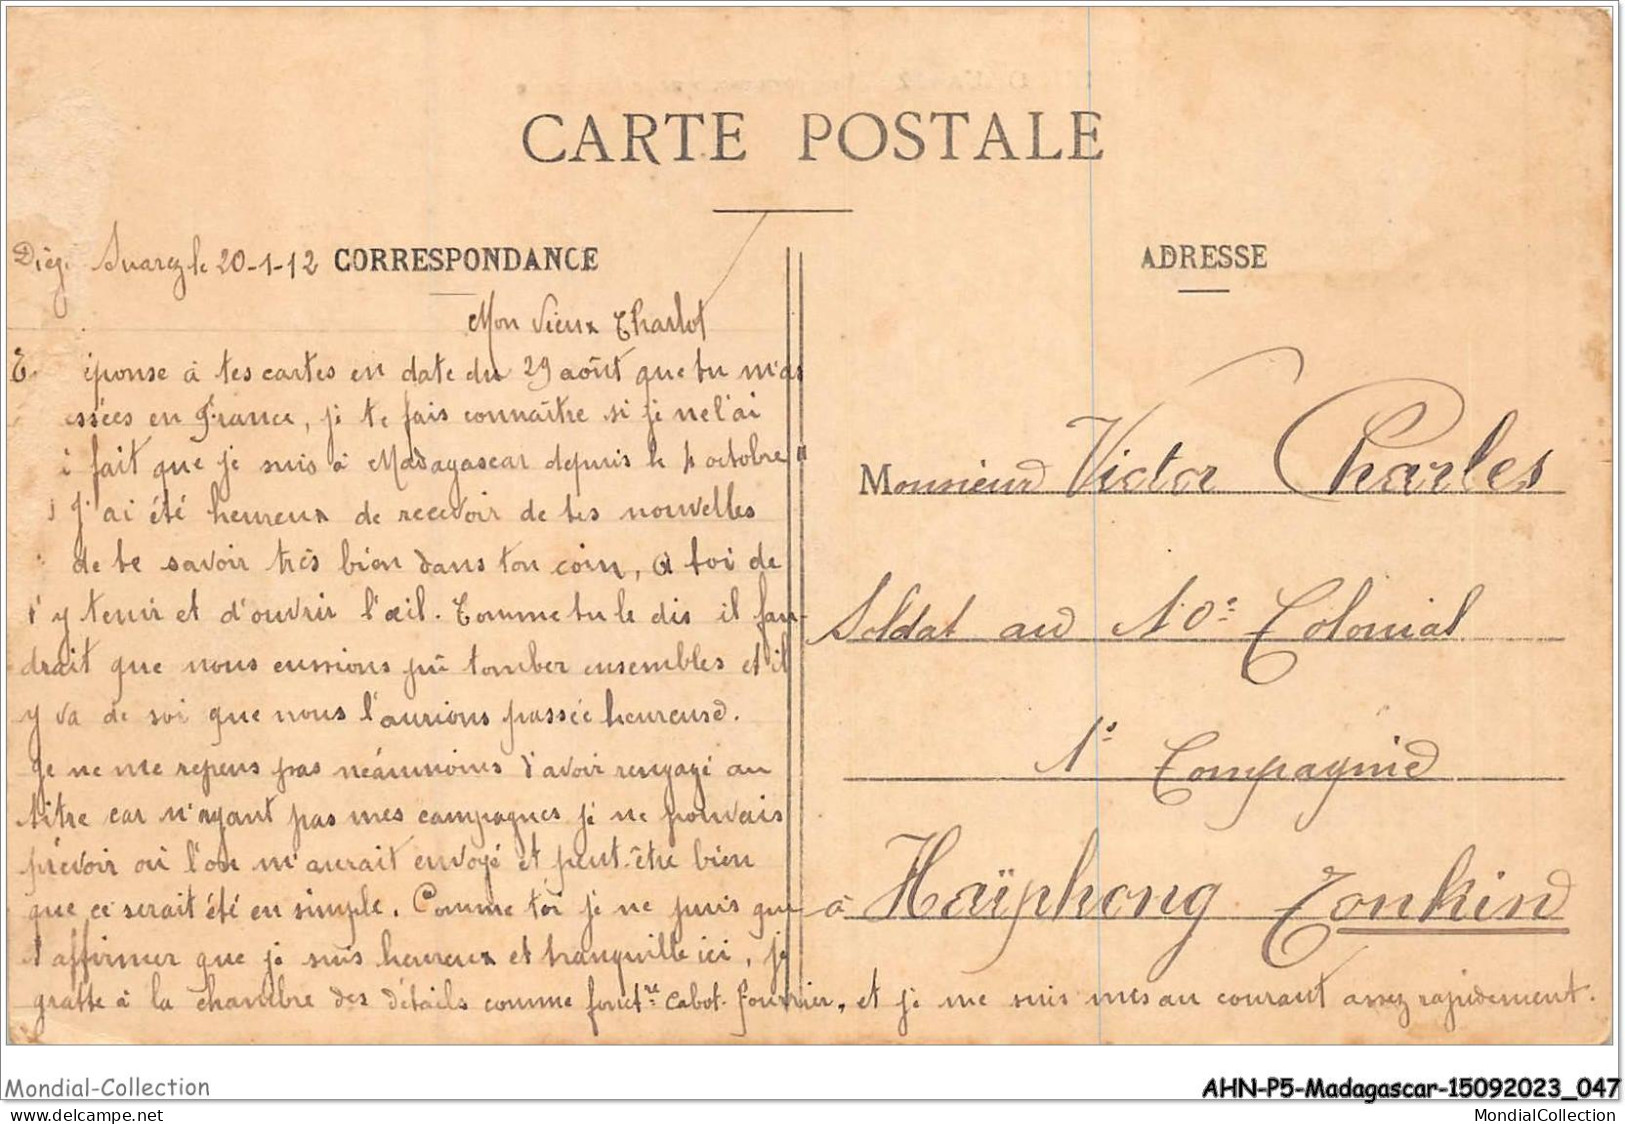 CARTE POSTALE
Diég. Suarez le 20-1-12 CORRESPONDANCE
Mon Vieux Charlot
éponse à tes cartes en date du 29 août que tu m'as
ssées en France, je te fais connaître si je ne l'ai
fait que je suis à Madagascar depuis le 1 octobre
J'ai été heureux de recevoir de tes nouvelles
de te savoir très bien dans ton coin, à toi de
t'y tenir et d'ouvrir l'œil. Comme tu le dis il fau-
drait que nous eussions pû tomber ensembles et il
y va de soi que nous l'aurions passée heureuse.
Je ne me repens pas néanmoins d'avoir rengagé au
titre car n'ayant pas mes campagnes je ne pouvais
prévoir où l'on m'aurait envoyé et peut-être bien
que ce serait été en simple. Comme toi je ne puis que
t'affirmer que je suis heureux et tranquille ici, je
gratte à la chambre des détails comme fonct:re Cabot-fourrier, et je me suis mis au courant assez rapidement.
ADRESSE
Monsieur Victor Charles
Soldat au 10e Colonial
1e Compagnie
à Haïphong Tonkin
Mondial-Collection
AHN-P5-Madagascar-15092023_047
delcampe.net
MondialCollection